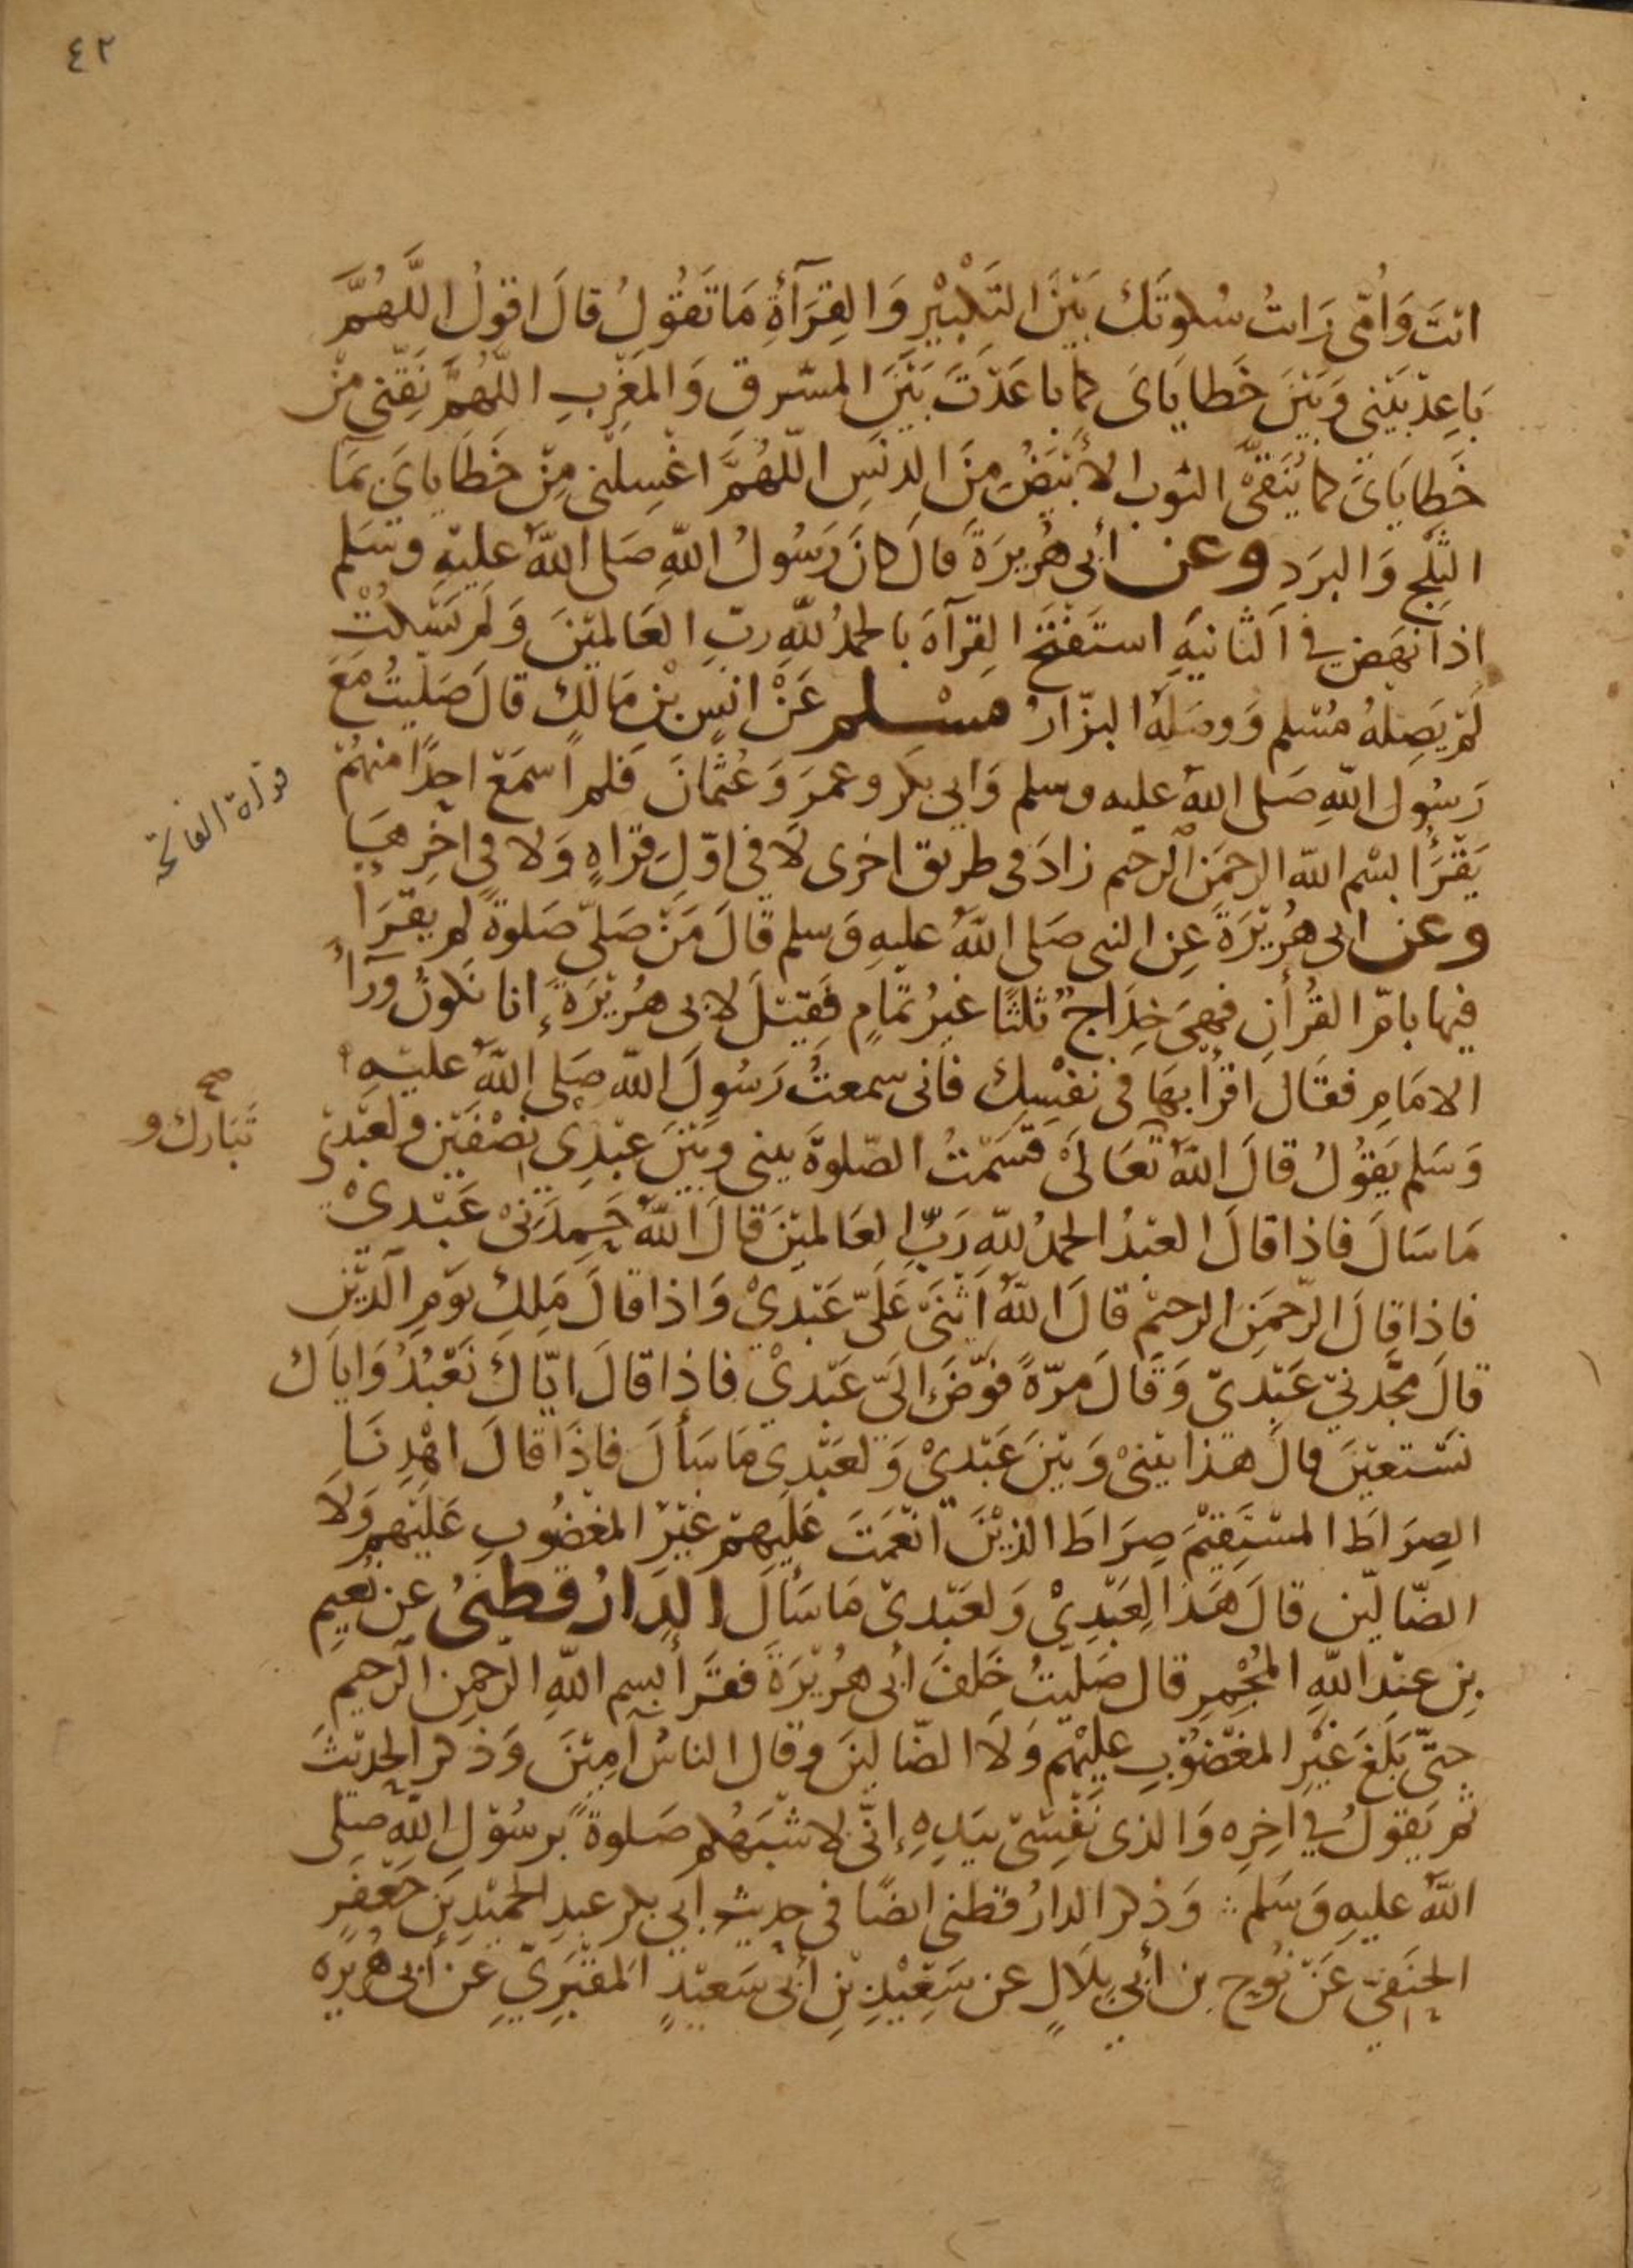 ٤٢
انتَ وَاُمّى رَاتُ سُكوتَكَ بَيْنَ التَكْبيْرِ وَالقِرَآةِ مَا تَقُولُ قالَ اقولُ اللَّهُمَّ
بَاعِدْ بَيْنِي وَبَيْنَ خَطايَاىَ كما باعَدْتَ بَيْنَ المشرقِ وَالمَغْرِبِ اللّهُمَّ نَقِّنِى مِنْ
خَطايَاىَ كما يُنَقَّىْ الثوب الأبْيَضُ مِنَ الدنَسِ اللّهُمَّ اغْسِلْنى مِنْ خَطَايايَ بمَا
الثلْجِ وَالبرَد وعن أبى هُرَيرَةَ قالَ كانَ رَسُولُ اللهِ صَلى اللهُ عليْهِ وسَلم
اذا نهَض في الثانيَهِ استَفتَحَ القِرآةَ بالحمْدُ للّهِ ربّ العَالميْنَ وَلم يَسْكُتْ
لَمْ يَصِلْهُ مُسْلم وَوصَلَهُ البزّارُ مسْلم عَنْ انَسِ بْنِ مَالكٍ قالَ صَليتُ مَعَ
رَسُول اللهِ صَلى اللهُ عليه وسلم وَابى بكرٍ وعمرَ وَعُثمانَ فَلم اَسمَعْ احِدًا منهُمْ
يَقْرَأُ بسْم الله الرحمَن الرحيم زادَ فى طريق اخرى لَا في اوّلِ قرَاهٍ وَلا فى اخِرِهَا
وعن ابى هُرَيْرَةَ عِن النبى صَلى اللهُ عليهِ وَسلم قالَ مَنْ صَلّى صَلوةً لم يقرَأ
فيها بامّ القُرأنِ فهِىَ خِدَاجٌ ثلثًا غيرُ تمَامٍ فَقيْلَ لابى هُرَيْرَةَ إنا نكونُ ورَآ
الامَامِ فقَالَ اقرأ بهَا فى نَفْسِكَ فانى سمعتُ رَسُولَ الله صَلى اللهُ عليْهِ
وَسَلم يَقُولُ قالَ اللهُ تَعَالَىْ قسَمْتُ الصّلوةَ بينى وبَيْنَ عبْدِى نِصْفَيْن ولعَبْدى
مَا سَالَ فاذا قالَ العبْدُ الحمْدُ للهِ رَبِّ العَالميْنَ قالَ اللهُ حَمِدَنىْ عَبْدىْ
فاذا قالَ الرّحمَنِ الرحيْم قالَ اللهُ اَثْنَى عَلَىّ عَبْدىْ وَاذا قالَ مَلِكِ يَوْمِ الدّيْنِ
قالَ مجَّدنيْ عَبْدىْ وَقالَ مرّةً فوّضَ الَىّ عَبْدىْ فاذا قالَ ايّاكَ نَعْبُدُ وَاياكَ
نسْتعيْنَ قالَ هَذا بَيْنىْ وَبَيْنَ عَبْدىْ وَلعَبْدِى مَا سَألَ فاذَا قالَ اهْدِنَا
الصِرَاطَ المسْتَقيْمَ صِرَاطَ الذيْنَ أنْعَمَتَ عَليهِمْ غَيْرِ المغضُوبِ عَليْهِم وَلَا
الضّالّين قالَ هَذا لِعَبْدِىْ وَلعَبْدىْ مَا سَألَ الدَارُقطنىُ عَن نُعَيمِ
بن عبْدِ اللهِ المجْمِرِ قال صَليتُ خَلفَ أبى هُرَيْرَةَ فقَرَأ بسِم اللهِ الرّحمن الرّحيم
حتّى بَلَغَ غَيْرِ المغْضوُبِ عليْهم وَلَا الضّالينَ وقال الناسُ آمِيْنَ وَذكر الحديْثَ
ثم يَقولُ في اخِرِه وَالذى نَفْسىْ بيَدِهِ إنّى لاشْبَهُكم صَلوةً برسُوْلِ اللهِ صَلى
اللهُ عليهِ وَسَلم وَذكر الدارُقطنى ايضًا فى حديث ابَي بكر عبدِ الحَميْدِ بْنِ جَعْفرٍ
الحنَفيّ عَنْ نُوح بن أبي بلَالٍ عن سَعِيْدِ بْنِ أبىْ سَعيْدٍ المَقبُريّ عَن أبى هُريْرَه
قراة الفاتحة
صح
تبَارك و